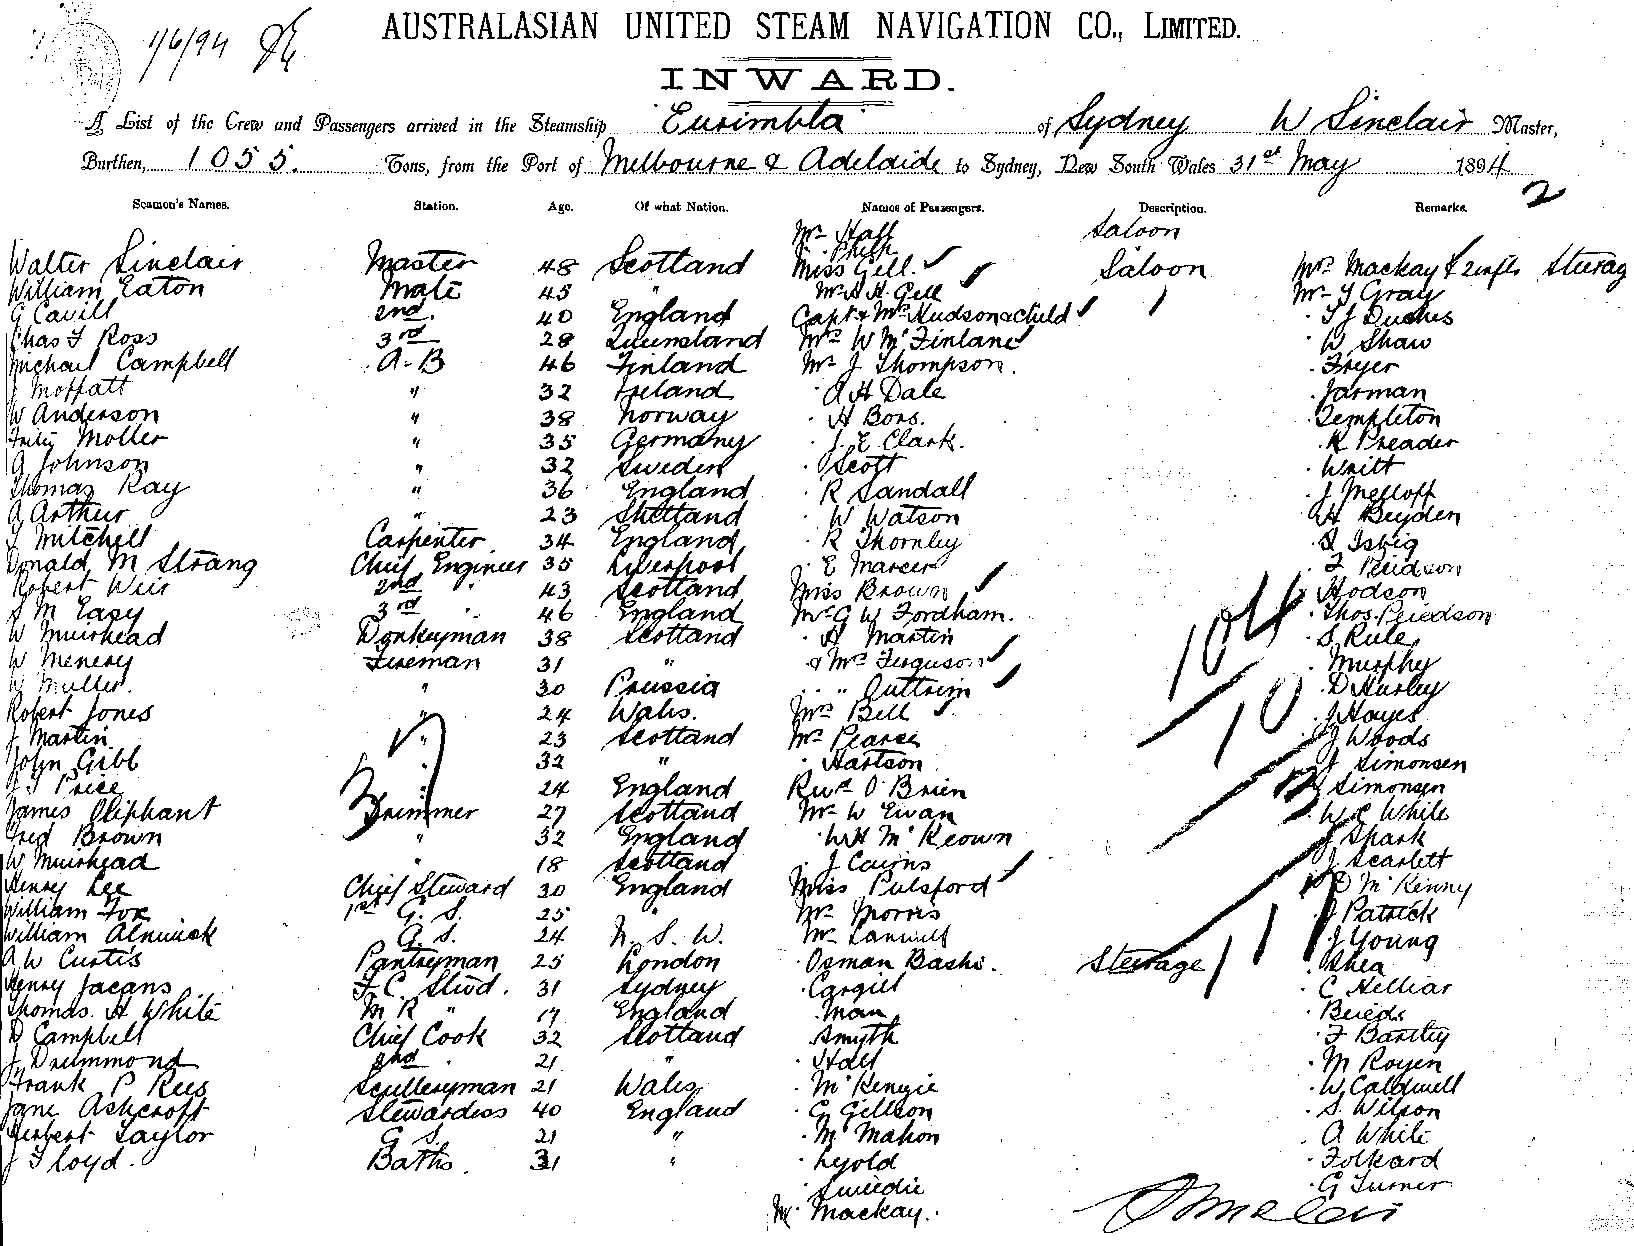 1/6/94
AUSTRALASIAN UNITED STEAM NAVIGATION CO., LIMITED.
INWARD.
A List of the Crew and Passengers arrived in the Steamship Eurimbla of Sydney W Sinclair Master,
Burthen, 1055. Tons, from the Port of Melbourne & Adelaide to Sydney, New South Wales 31st May 1894
2
Seamen's Names. Station. Age. Of what Nation. Names of Passengers. Description. Remarks.
Mr Hall Saloon
Walter Sinclair Master 48 Scotland Miss Gill. Saloon Mrs Mackay & 2 infts Steerag
William Eaton Mate 45 " Mr A H Gill Mr T Gray
G Cavill 2nd. 40 England Capt & Mrs Hudson & child
Chas F Ross 3rd 28 Queensland Mrs W McFinlane · W Shaw
Michael Campbell A-B 46 Finland Mr J Thompson. · Fryer
J Moffatt " 32 Ireland · A H Dale · Jarman
W Anderson " 38 Norway · H Bons. · Templeton
Moller " 35 Germany · J. E Clark. · K Preader
A Johnson " 32 Sweden · Scott
Thomas Ray " 36 England · R Sandall
A Arthur " 23 Shetland · W Watson
T Mitchell Carpenter 34 England · R Thornley
Donald M Strang Chief Engineer 35 Liverpool · E Mercer
Robert Weir 2nd " 43 Scotland Miss Brown · Hodson
S M Easy 3rd " 46 England Mr G W Fordham.
W Muirhead Donkeyman 38 Scotland · H Martin · S Rule
W Menery Fireman 31 " & Mrs Ferguson · Murphy
W Muller. " 30 Prussia · " Outtrim · D Hurley
Robert Jones " 24 Wales. Mrs Bell · J Hayes
J Martin " 23 Scotland Mr Pearce · J Woods
John Gibb " 32 " · Hartson · J Simonsen
J T Price 24 England Revd O'Brien Simonsen
James Oliphant Trimmer 27 Scotland Mr W Ewan · W C White
Fred Brown " 32 England · W H McKeown J Spark
W Muirhead " 18 Scotland · J Cairns J Scarlett
Henry Lee Chief Steward 30 England Miss Pulsford D McKenny
William Fox 1st G. S. 25 " Mr Morris J Patrick
William Alnwick G. S. 24 N. S. W. Mr · J Young
A W Curtis Pantryman 25 London · Osman Bashi. Steerage · Shea
Henry Jacans F. C. Stwd. 31 Sydney · Cargill · C Helliar
Thomas. H White M R " 19 England · Man
D Campbell Chief Cook 32 Scotland · Smyth · F Bartley
J Drummond 2nd " 21 " · Hall · M Royen
Frank P Rees Sculleryman 21 Wales · McKenzie · W Caldwell
Jane Ashcroft Stewardess 40 England · G Gillson · S. Wilson
Herbert Taylor G S. 21 " · McMahon · A White
J Floyd. Baths. 31 " · Lyold · Folkard
· Sweedie · G Turner
Mr Mackay.
104
10